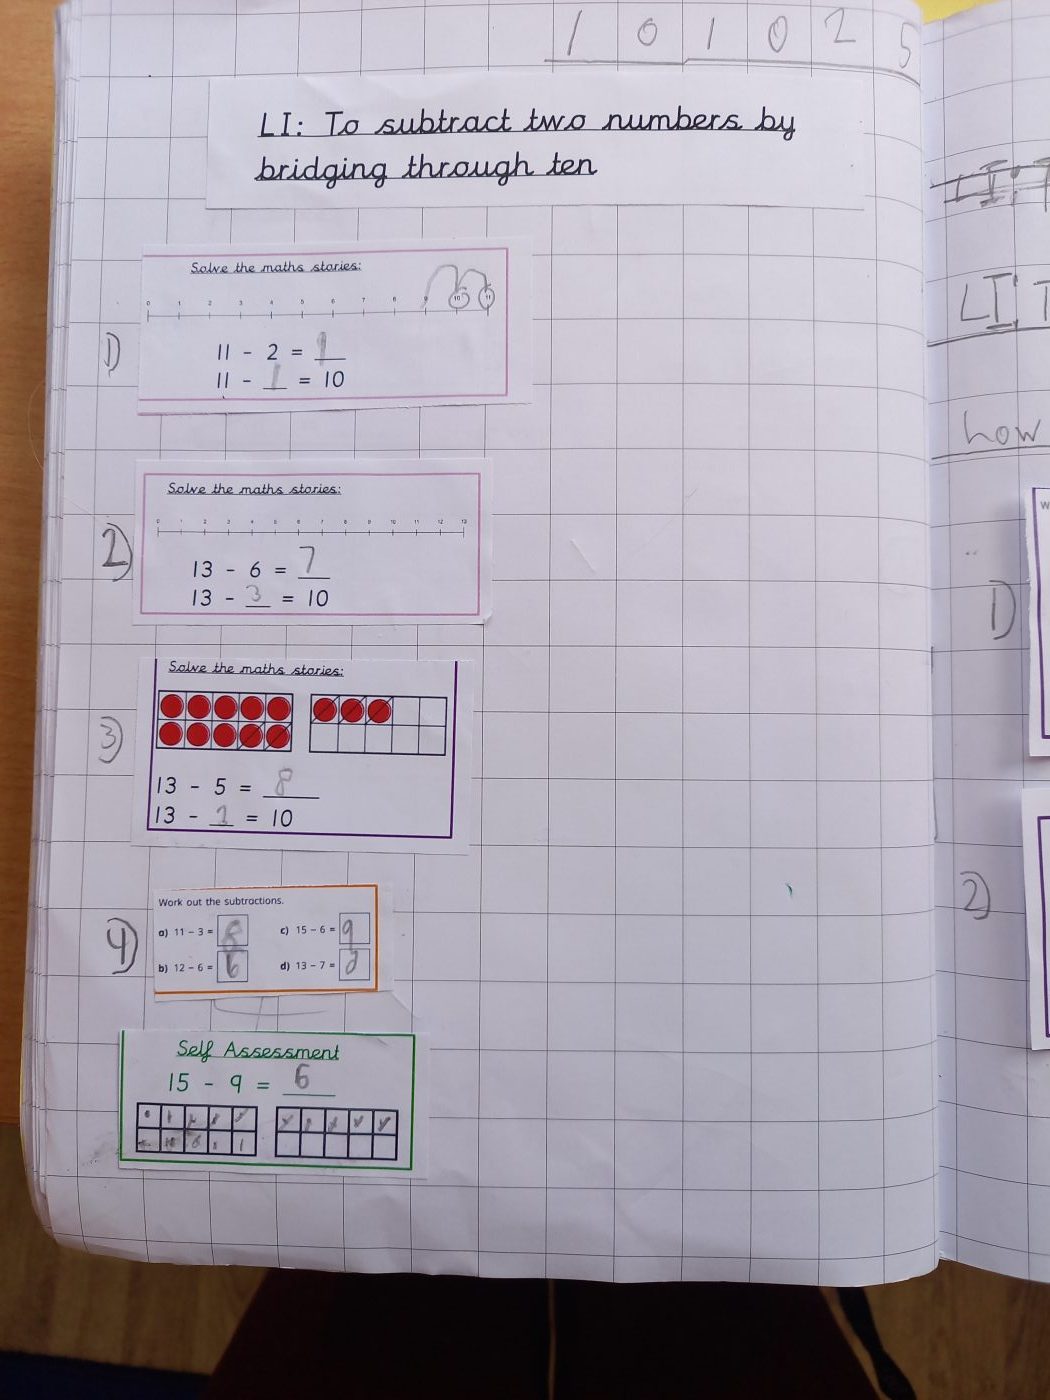 1 0 1 0 2 5
LI: To subtract two numbers by
bridging through ten
LI: T
Solve the maths stories:
0 1 2 3 4 5 6 7 8 9 10 11
1)
11 - 2 =
11 - 1 = 10
LI: T
how
2)
Solve the maths stories:
0 1 2 3 4 5 6 7 8 9 10 11 12 13
13 - 6 = 7
13 - 3 = 10
W
1)
3)
Solve the maths stories:
13 - 5 = 8
13 - __ = 10
4)
Work out the subtractions.
a) 11 - 3 = 8 c) 15 - 6 = 9
b) 12 - 6 = 6 d) 13 - 7 =
2)
Self Assessment
15 - 9 = 6